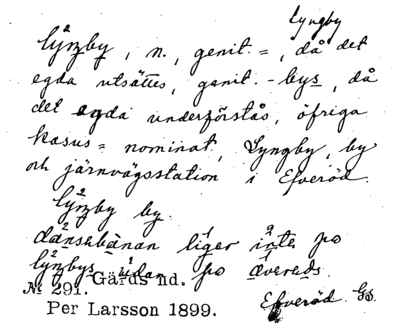 Lyngby
lyŋby, n., genit. =, då det
egda utsättes, genit. -bys, då
det egda underförstås, öfriga
kasus = nominat. Lyngby, by
och järnvägsstation i Efveröd.
lyŋby by.
liger inte po
lyŋbys udan po
Gärds hd.
№ 291.
Efveröd. Gs.
Per Larsson 1899.